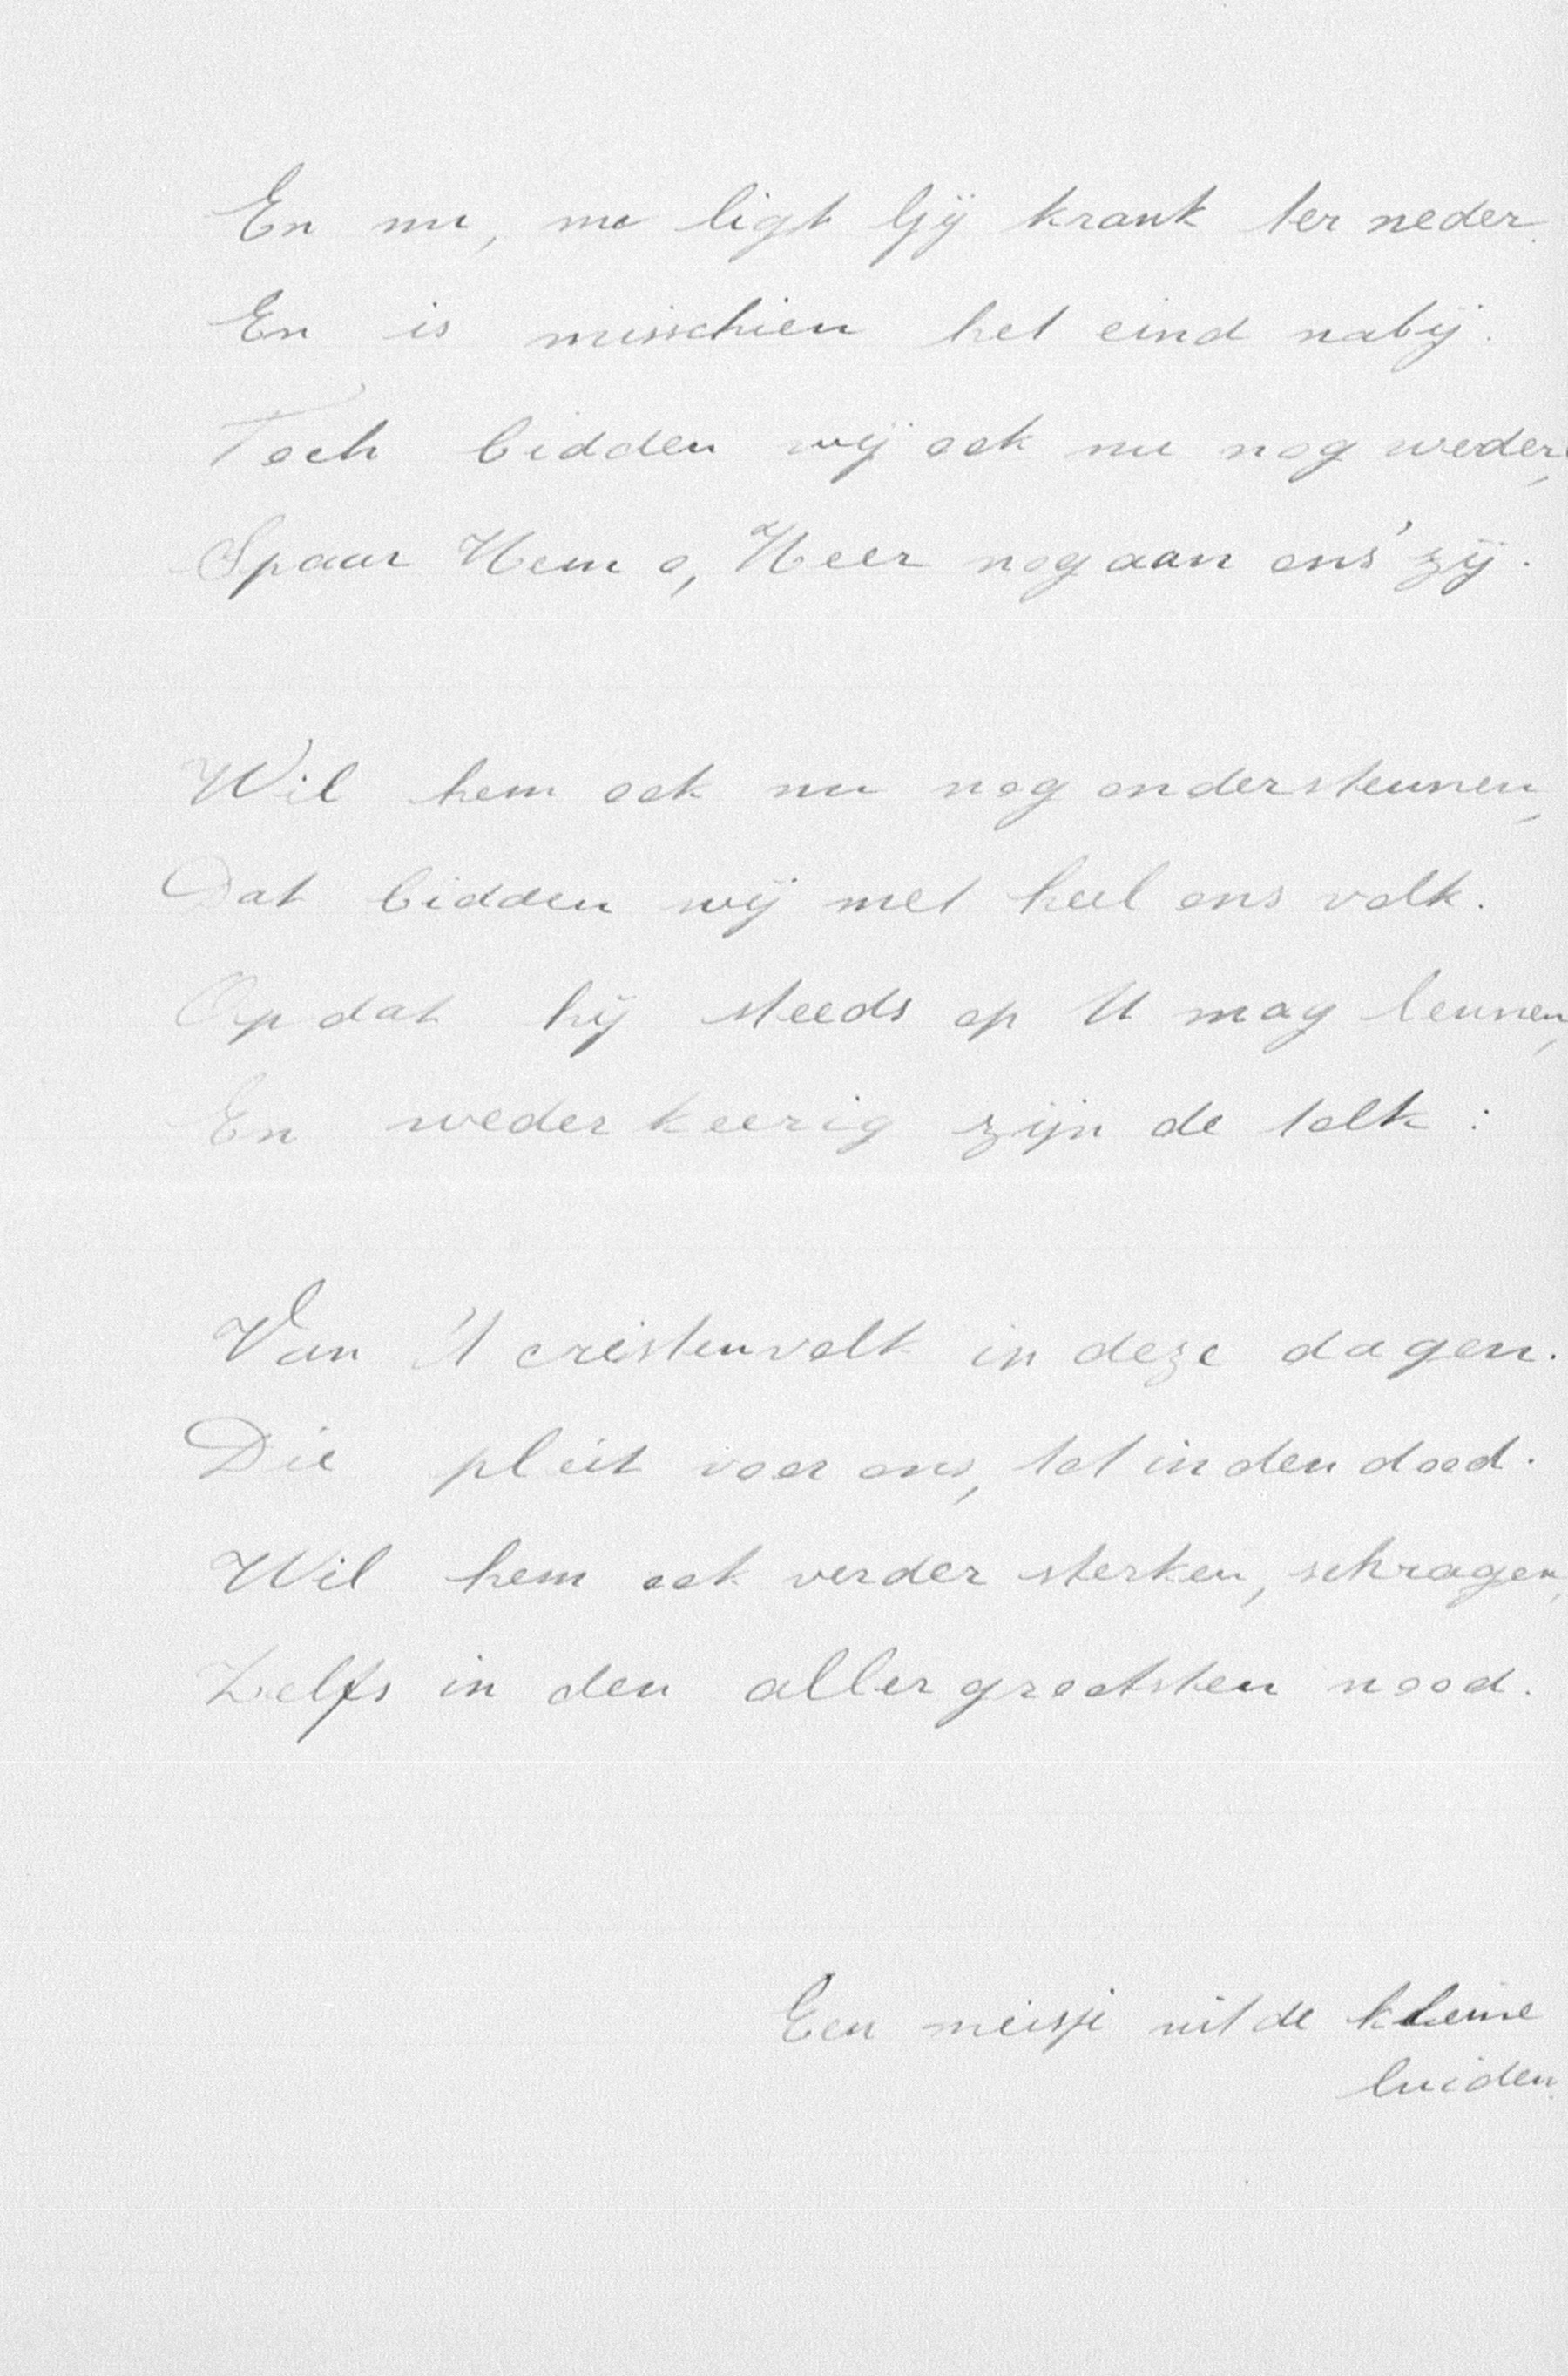 En nu, nu ligt Gij krank ter neder.
En is misschien het eind nabij.
Toch bidden wij ook nu nog weder,
Spaar Hem o, Heer nog aan ons' zij.
Wil hem ook nu nog ondersteunen,
Dat bidden wij met heel ons volk.
Opdat hij steeds op U mag leunen,
En wederkeerig zijn de tolk:
Van 't cristenvolk in deze dagen.
Die pleit voor ons, tot in den dood.
Wil hem ook verder sterken, schragen,
Zelfs in den allergrootsten nood.
Een meisje uit de kleine
luiden.